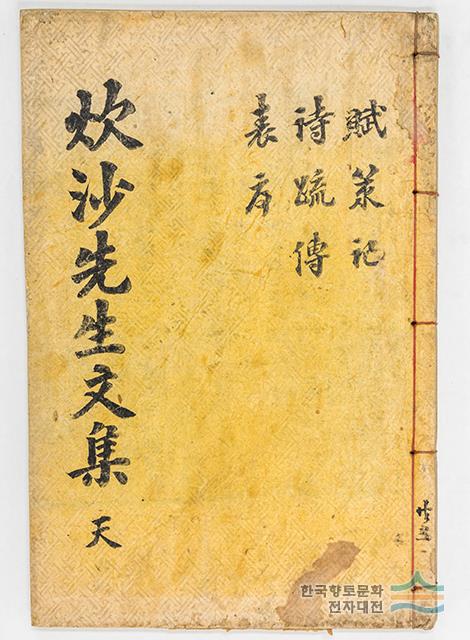 賦策記
詩䟽傳
表序
炊沙先生文集 天
한국향토문화
전자대전